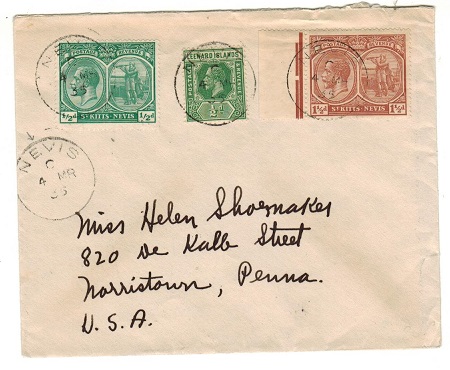 POSTAGE REVENUE
½d ST KITTS-NEVIS ½d
LEEWARD ISLANDS
POSTAGE & REVENUE
½d
POSTAGE REVENUE
1½d ST KITTS-NEVIS 1½d
NEVIS
C
4 MR
35
Miss Helen Shoemaker
820 De Kalb Street
Norristown, Penna.
U.S.A.